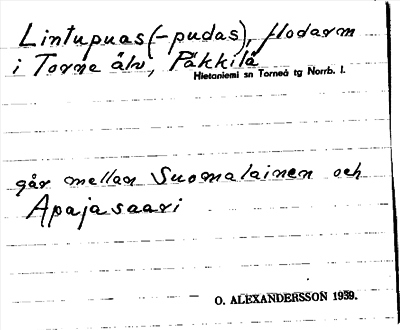 Lintupuas (-pudas), flodarm
i Torne älv, Päkkilä
Hietaniemi sn Torneå tg Norrb. l.
går mellan Suomalainen och
Apajasaari
O. ALEXANDERSSON 1959.